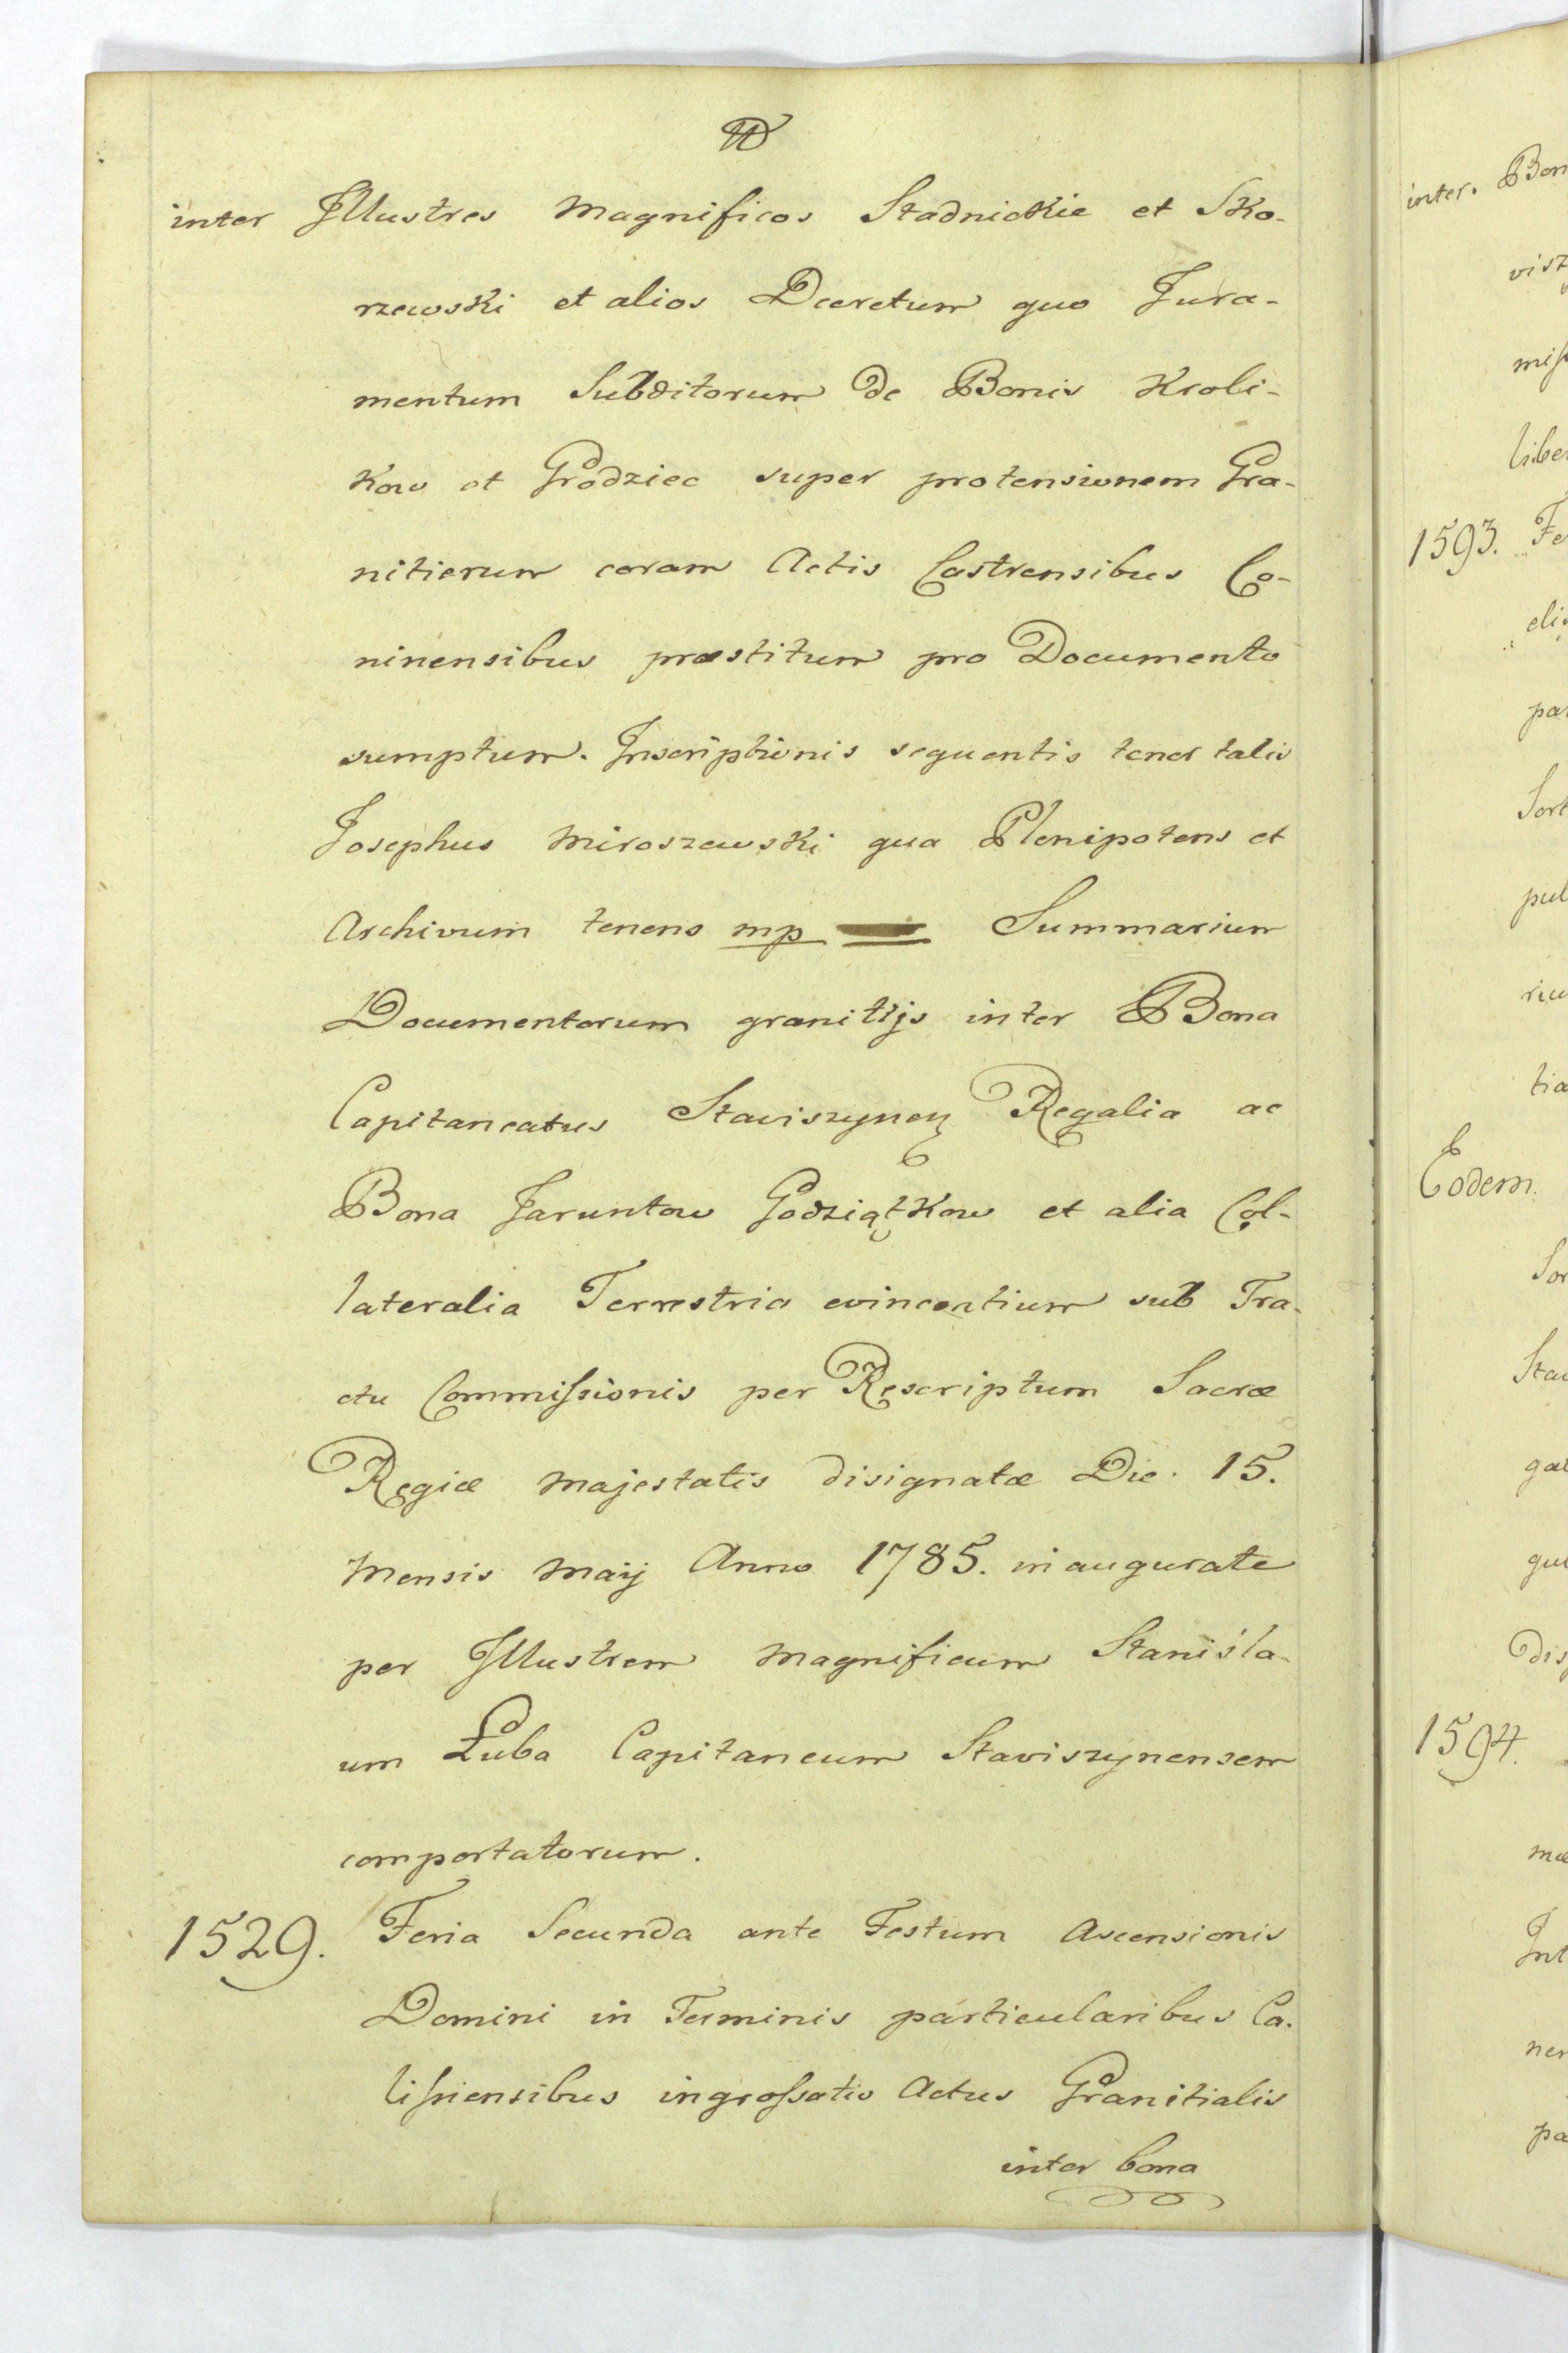 inter Illustres Magnificos Stadnickie et Sko-
rzewski et alios Decretum quo Jura-
mentum Subditorum de Bonis Kroli-
kow et Grodziec super protensionem Gra-
nitierum coram Actis Castrensibus Co-
ninensibus præstitum pro Documento
sumptum. Inscriptionis sequentis tenor talis
Josephus Miroszewski qua Plenipotens et
Archivum tenens mp Summarium
Documentorum granitijs inter Bona
Capitaneatus Staviszynen Regalia ac
Bona Jaruntow Godziątkow et alia Col-
lateralia Terrestria evincentium sub Tra-
ctu Commissionis per Rescriptum Sacræ
Regiæ Majestatis disignatæ Die 15.
Mensis Maij Anno 1785. inaugurate
per Illustrem Magnificum Stanisla-
um Łuba Capitaneum Staviszynensem
comportatorum.
1529. Feria Secunda ante Festum Ascensionis
Domini in Terminis particularibus Ca-
lissiensibus ingrossatis Actus Granitialis
inter bona
inter. Bon
visz
miss
liber
1593. Fe
par
Sort
pul
tia
Eodem.
Sor
Stav
1594.
Int
ner
pa